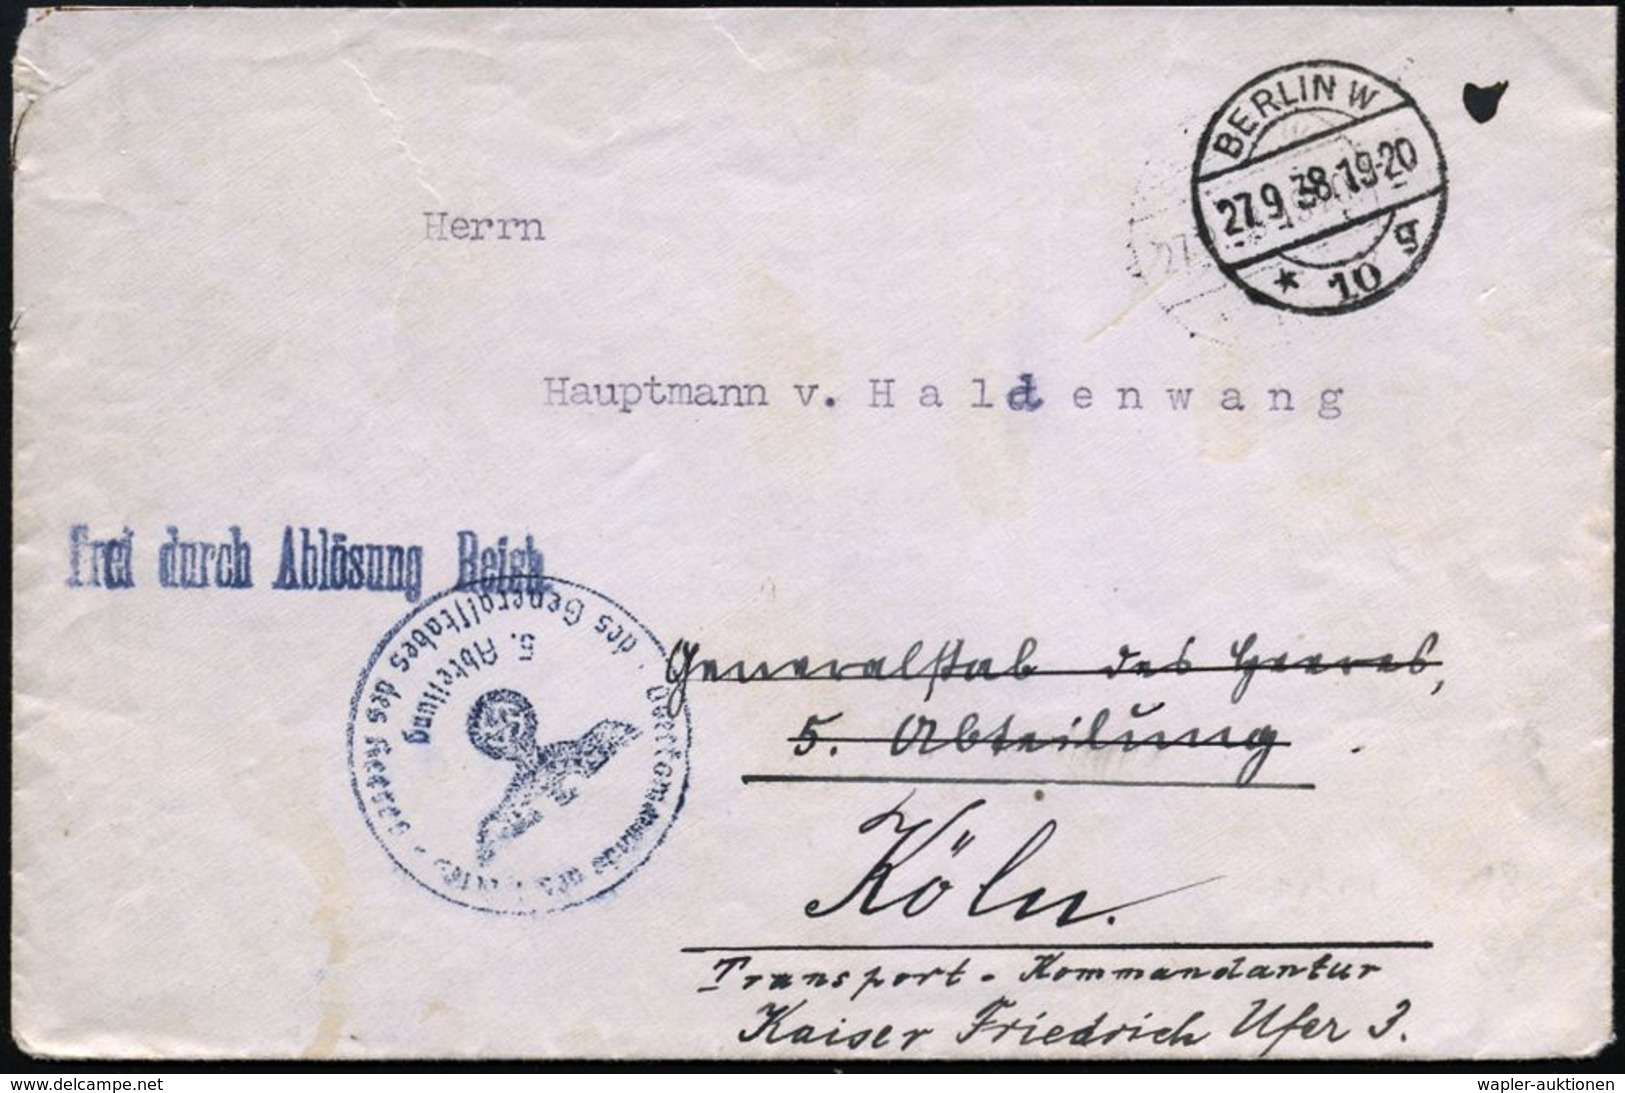 BERLIN W
27.9.38.19-20
* 10 g
Herrn
Hauptmann v. Haldenwang
Frei durch Ablösung Reich.
Oberkommando des Heeres · Generalstab des Heeres
5. Abteilung
Generalstab des Heeres,
5. Abteilung
Köln.
Transport-Kommandantur
Kaiser Friedrich Ufer 3.
www.delcampe.net
wapler-auktionen